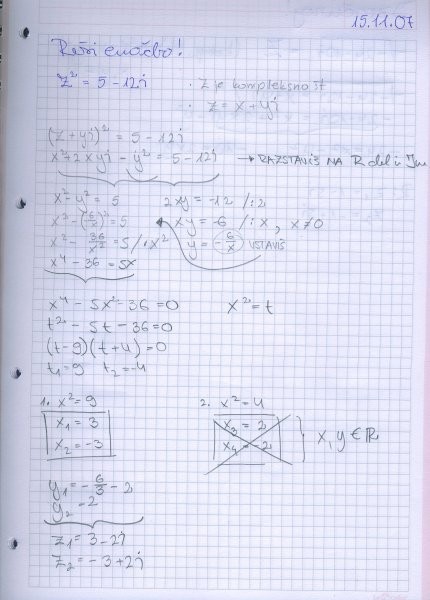 15.11.07
Reši enačbo!
z² = 5 - 12i
z je kompleksno št
z = x + yi
(z + yi)² = 5 - 12i
x² + 2xyi - y² = 5 - 12i → RAZSTAVIŠ NA R del in Im
x² - y² = 5 2xy = -12 /:2
x² - (6/x)² = 5 xy = -6 /:x, x≠0
x² - 36/x² = 5 /·x² y = -6/x VSTAVIŠ
x⁴ - 36 = 5x
x⁴ - 5x² - 36 = 0 x² = t
t² - 5t - 36 = 0
(t-9)(t+4) = 0
t₁ = 9 t₂ = -4
1. x² = 9 2. x² = 4
x₁ = 3 x₃ = 2
x₂ = -3 x₄ = -2
x, y ∈ ℝ
y₁ = -6/3 - 2
y₂ = 2
z₁ = 3 - 2i
z₂ = -3 + 2i